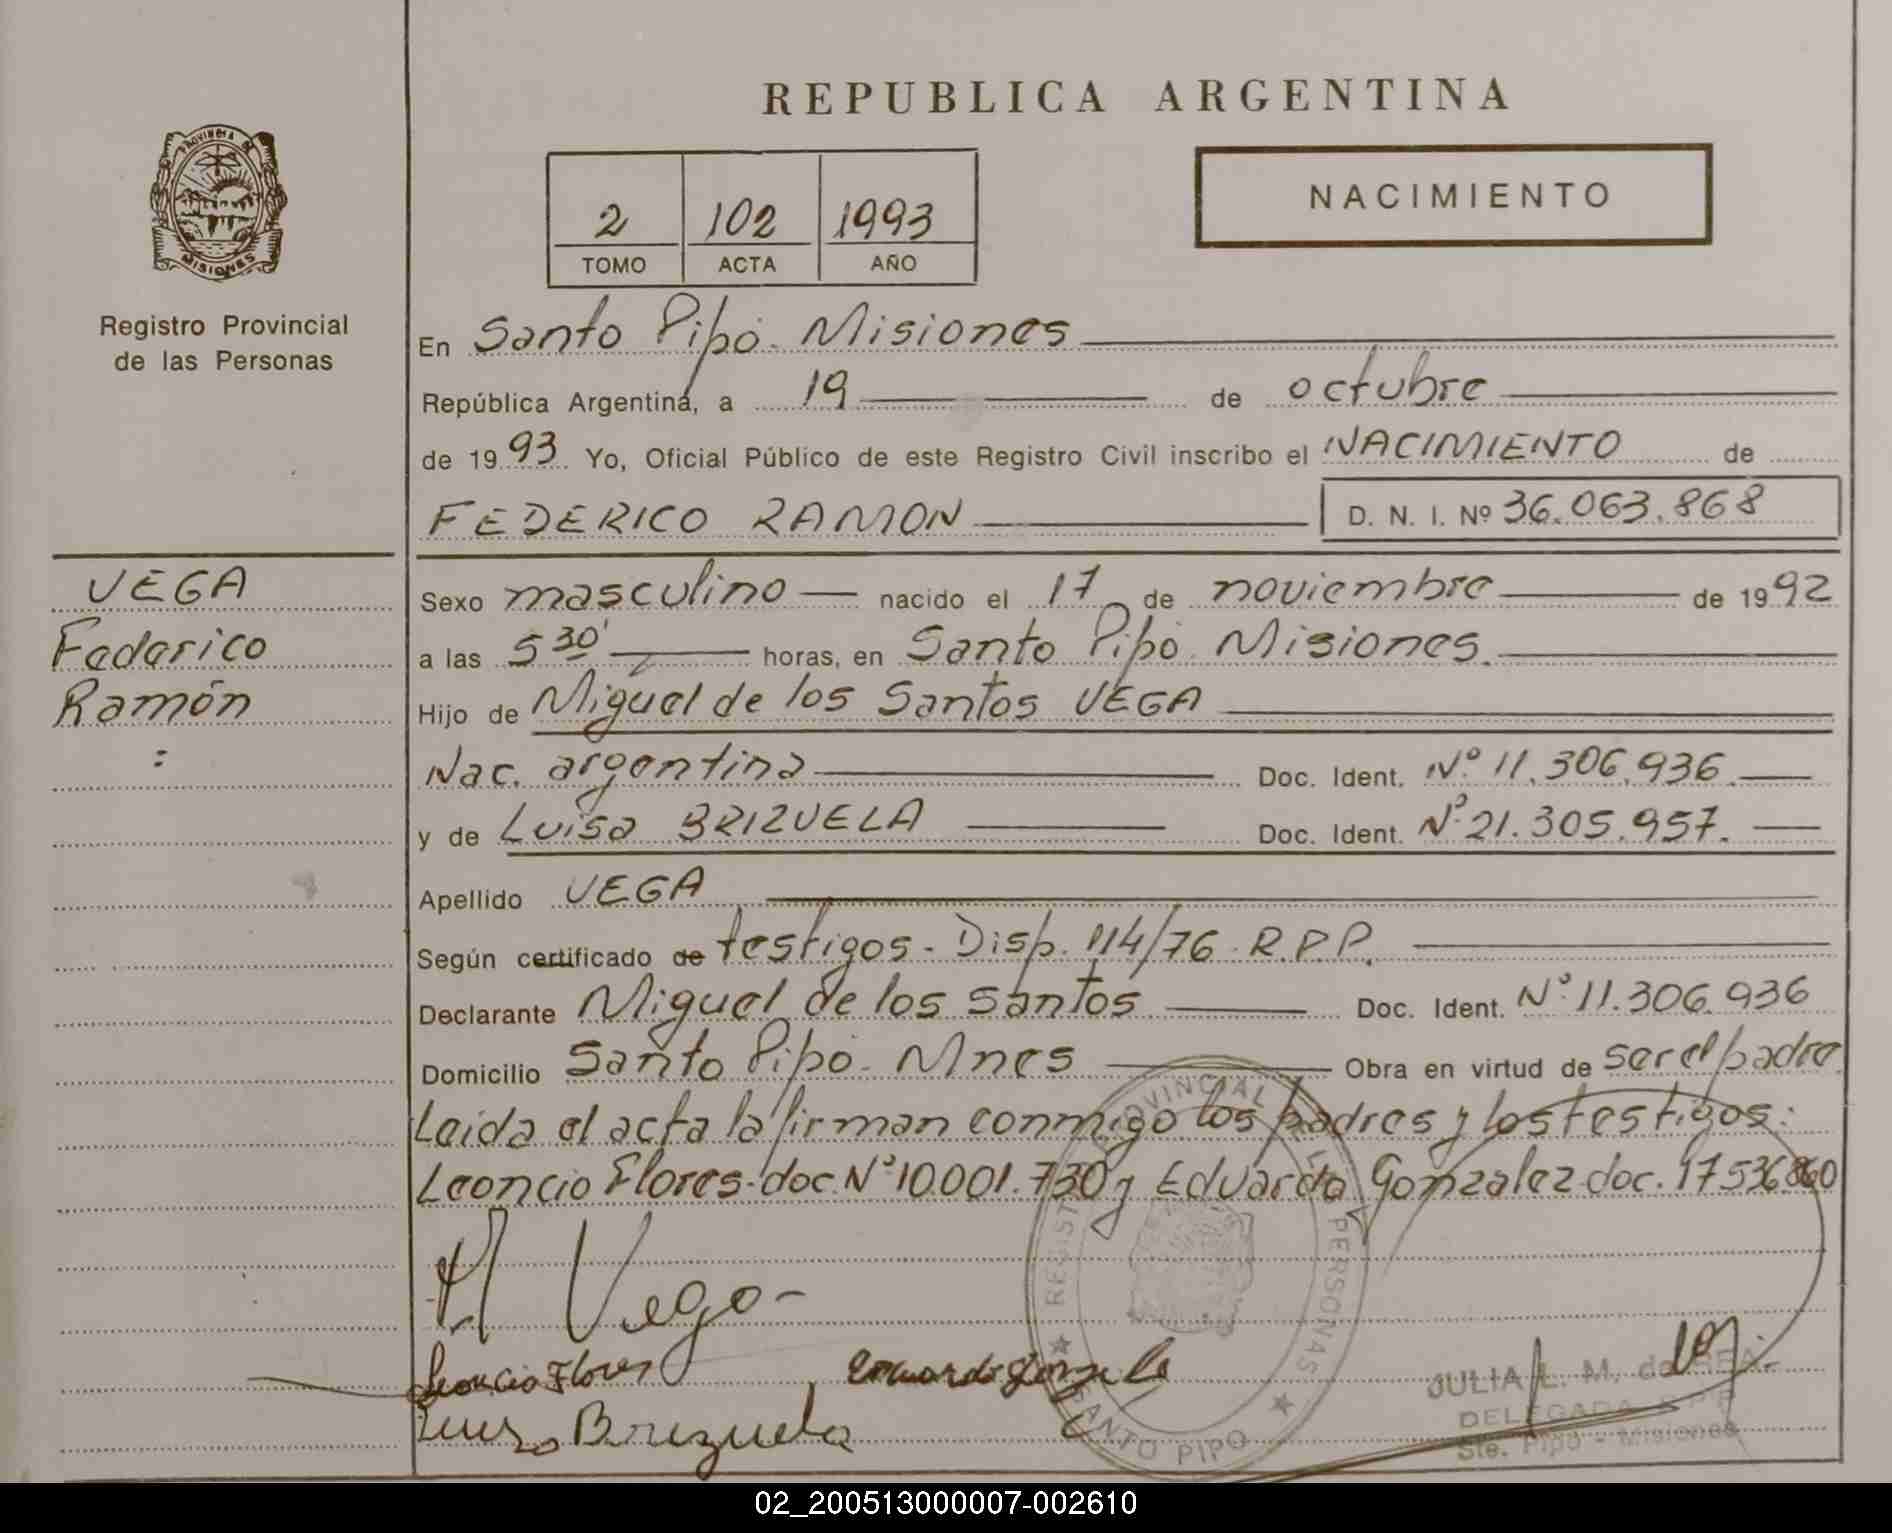 REPUBLICA ARGENTINA
PROVINCIA DE
MISIONES
Registro Provincial
de las Personas
2 102 1993
TOMO ACTA AÑO
NACIMIENTO
En Santo Pipó. Misiones
República Argentina, a 19 de octubre
de 1993 Yo, Oficial Público de este Registro Civil inscribo el NACIMIENTO de
FEDERICO RAMON D. N. I. Nº 36.063.868
VEGA
Federico
Ramón
:
Sexo masculino nacido el 17 de noviembre de 1992
a las 5 30' horas, en Santo Pipó. Misiones.
Hijo de Miguel de los Santos VEGA
Nac. argentina Doc. Ident. Nº 11.306.936
y de Luisa BRIZUELA Doc. Ident. Nº 21.305.957.
Apellido VEGA
Según certificado de testigos - Disp. 114/76 - R.P.P.
Declarante Miguel de los Santos Doc. Ident. Nº 11.306.936
Domicilio Santo Pipó - Mnes Obra en virtud de ser el padre.
Leida el acta la firman conmigo los padres y los testigos:
Leoncio Flores - doc. Nº 10.001.730 y Eduardo Gonzalez doc. 17536860
M Vega -
Leoncio Flores Eduardo Gonzale
Luisa Brizuela
REGISTRO PROVINCIAL DE LAS PERSONAS
SANTO PIPO
JULIA L. M. de REA
DELEGADA R.P.P.
Sto. Pipó - Misiones
02_200513000007-002610